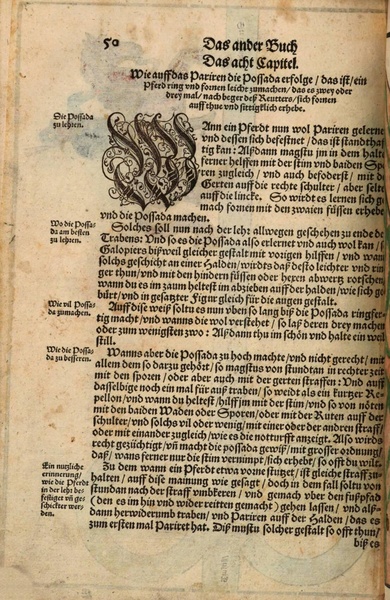 50
Das ander Buch
Das acht Capitel.
Wie auff das Pariren die Possada erfolge / das ist / ein
Pferd ring vnd fornen leicht zumachen / das es zwey oder
drey mal / nach beger deß Reutters / sich fornen
auff thue vnd sittigklich erhebe.
Die Possada
zu lehren.
WAnn ein Pferdt nun wol Pariren gelerne
vnd dessen sich befestnet / das ist standthaf
tig kan: Alßdann magstu jm in dem halte
ferner helffen mit der stim vnd baiden Spo
ren zugleich / vnd auch befoderst / mit de
Gerten auff die rechte schulter / aber selte
auff die lincke. So wirdt es lernen sich ge
mach fornen mit den zwaien füssen erhebe
vnd die Possada machen.
Wo die Possa-
da am besten
zu lehren.
Solches soll nun nach der lehr allwegen geschehen zu ende de
Trabens: Vnd so es die Possada also erlernet vnd auch wol kan / s
Galopiers bißweil gleicher gestalt mit vorigen hilffen / vnd wann
solchs geschicht an einer Halden / wirdts daß desto leichter vnd rin
ger thun / vnd mit den hindern füssen oder hexen abwertz rotschen
wann du es im zaum heltest im abzieben auff der halden / wie sich ge
bürt / vnd in gesatzter Figur gleich für die augen gestalt.
Wie vil Possa-
da zumachen.
Auff dise weiß soltu es nun vben so lang biß die Possada ringfer-
tig macht / vnd wanns die wol verstehet / so laß deren drey machen
oder zum wenigsten zwo: Alßdann thu im schön vnd halte ein weil
still.
Wie die Possa-
da zu bessern.
Wanns aber die Possada zu hoch machte / vnd nicht gerecht / mit
allem dem so darzu gehört / so magstus von stundtan in rechter zeit
mit den sporen / oder aber auch mit der gerten straffen: Vnd auff
dasselbige noch ein mal für auß traben / so weidt als ein kurtzer Re-
pellon / vnd wann du heltest / hilff jm mit der stim / vnd so von nöten
mit den baiden Waden oder Sporen / oder mit der Ruten auff der
schulter / vnd solchs vil oder wenig / mit einer oder der andren straff /
oder mit einander zugleich / wie es die notturfft anzeigt. Also wirds
recht gezüchtigt / vñ macht die possada gewiß / mit grosser ordnung /
daß / wans ferner nur die stim vernimpt / sich erhebt / so offt du wilt.
Ein nutzliche
erinnerung /
wie die Pferde
in der lehr be-
festiget vñ ge-
schickter wer-
den.
Zu dem wann ein Pferdt etwa vorne stützet / ist gleich straff zu-
halten / auff dise mainung wie gesagt / doch in dem fall soltu von
stundan nach der straff vmbkeren / vnd gemach vber den fußpfad
(den es im hin vnd wider reitten gemacht) gehen lassen / vnd alß-
dann herwiderumb traben / vnd Pariren auff der Halden / das es
zum ersten mal Pariret hat. Diß mustu solcher gestalt so offt thun /
biß es